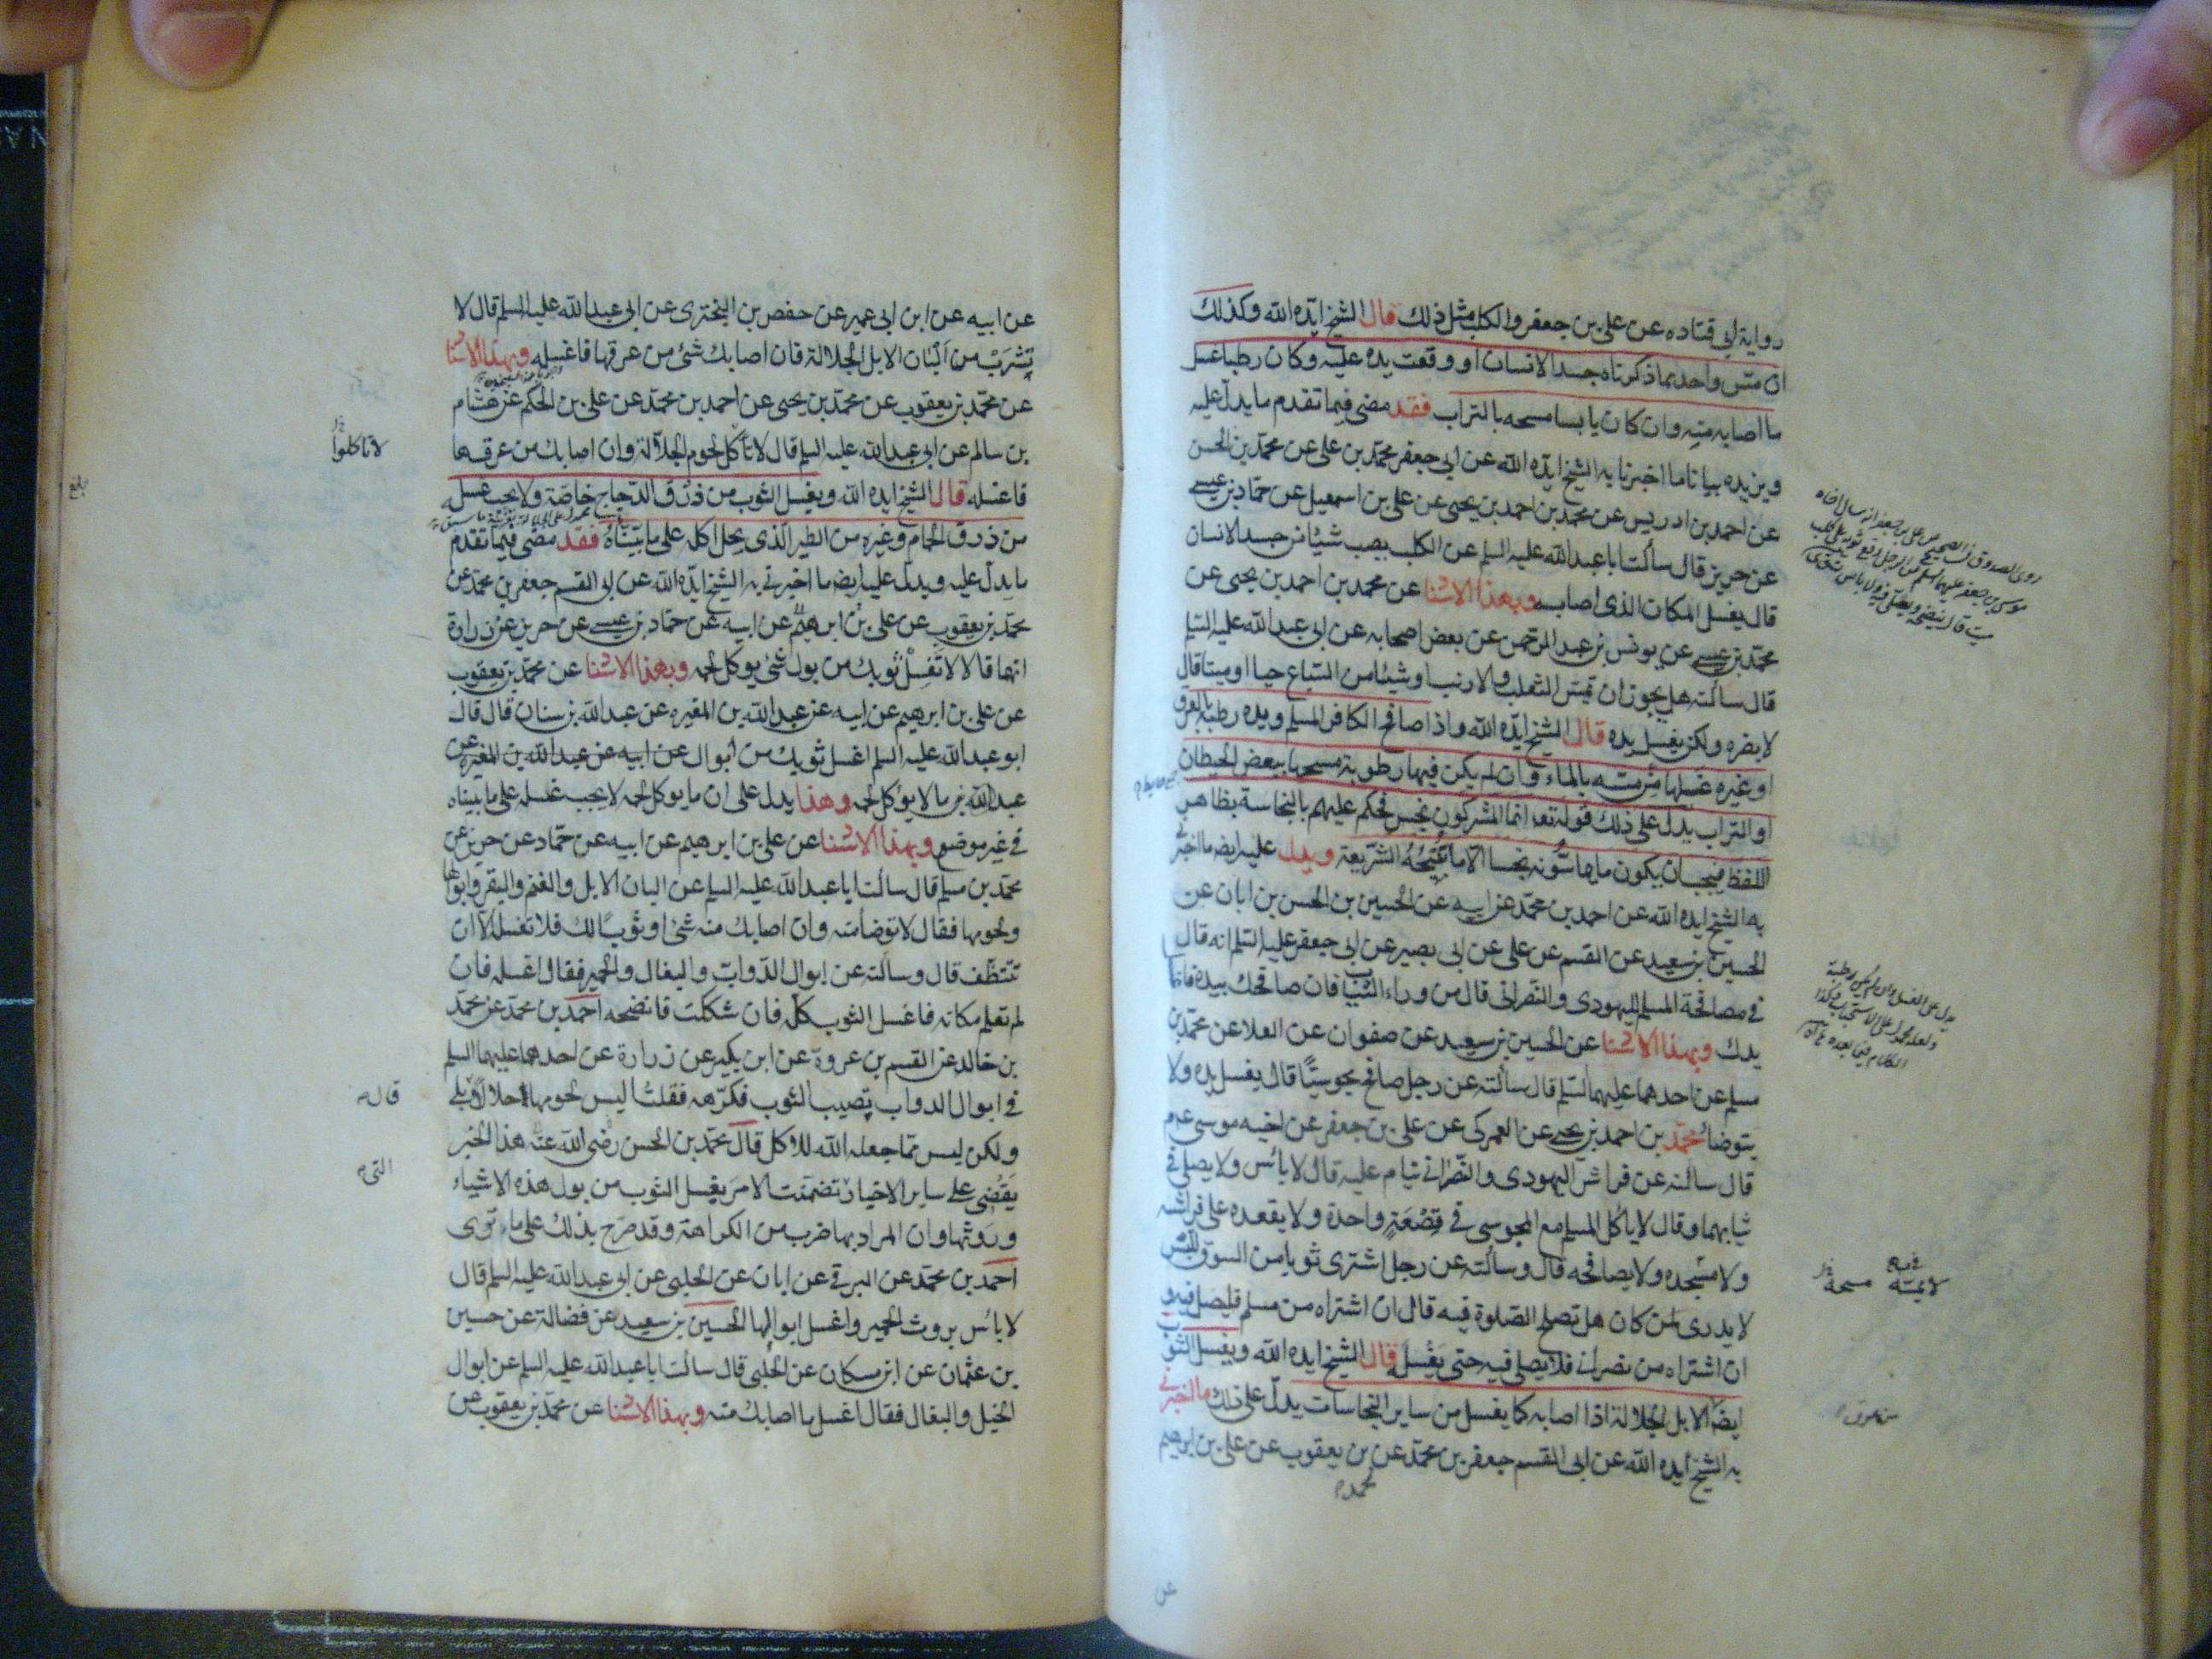 رواية ابي قتاده عن علي بن جعفر والكلب مثل ذلك قال الشيخ ايده الله وكذلك
ان مس واحد مما ذكرناه جسد الانسان او وقعت يده عليه وكان رطبا غسل
ما اصابه منه وان كان يابسا مسحه بالتراب فقد مضى فيما تقدم ما يدل عليه
ويزيده بيانا ما اخبرنا به الشيخ ايده الله عن ابي جعفر محمد بن علي عن محمد بن الحسن
عن احمد بن ادريس عن محمد بن احمد بن يحيى عن علي بن اسمعيل عن حماد بن عيسى
عن حريز قال سألت ابا عبد الله عليه السلم عن الكلب يصب شيئا من جسد الانسان
قال يغسل المكان الذي اصابه وبهذا الاسنا عن محمد بن احمد بن يحيى عن
محمد بن عيسى عن يونس بن عبد الرحمن عن بعض اصحابه عن ابى عبد الله عليه السلم
قال سالته هل يجوز ان تمس الثعلب والارنب او شيئا من السباع حيا او ميتا قال
لا يضره ولكن يغسل يده قال الشيخ ايده الله واذا صافح الكافر المسلم ويده رطبة بالعرق
او غيره غسلها من مسه بالماء وان لم يكن فيها رطوبة مسحها ببعض الحيطان
او التراب يدل على ذلك قوله تعه انما المشركون نجس فحكم عليهم بالنجاسة بظاهر
اللفظ فيجب ان يكون ما يماسونه نجسا الا ما تبيحه الشريعة ويدل عليه ايضه ما اخبرني
به الشيخ ايده الله عن احمد بن محمد عن ابيه عن الحسين بن الحسن بن ابان عن
الحسين بن سعيد عن القسم عن علي عن ابى بصير عن ابى جعفر عليه السلم انه قال
في مصافحة المسلم لليهودى والنصرانى قال من وراء الثياب فان صافحك بيده فاغسل
يدك وبهذا الاسنا عن الحسين بن سعيد عن صفوان عن العلا عن محمد بن
مسلم عن احدهما عليهما السلم قال سألته عن رجل صافح مجوسيا قال يغسل يده ولا
يتوضا محمد بن احمد بن يحيى عن العمركى عن على بن جعفر عن اخيه موسى عم
قال سألته عن فراش اليهودى والنصرانى ينام عليه قال لا بأس ولا يصلى فى
ثيابهما وقال لا ياكل المسلم مع المجوسى فى قصعة واحدة ولا يقعده على فراشه
ولا مسجده ولا يصافحه قال وسألته عن رجل اشترى ثوبا من السوق للبس
لا يدرى لمن كان هل تصلح الصلوة فيه قال ان اشتراه من مسلم فليصل فيه و
ان اشتراه من نصرانى فلا يصلى فيه حتى يغسله قال الشيخ ايده الله ويغسل الثوب
ايضا الابل الجلالة اذا اصابه كما يغسل من ساير النجاسات يدل على ذلك ما اخبرنى
به الشيخ ايده الله عن ابى القسم جعفر بن محمد عن بن يعقوب عن على بن ابرهيم
محمد
عن
لا يمسه
مسحة
من عرق
عن ابيه عن ابن ابى عمير عن حفص بن البخترى عن ابى عبد الله عليه السلم قال لا
تشرب من البان الابل الجلالة فان اصابك شئ من عرقها فاغسله وبهذا الاسنا
عن محمد بن يعقوب عن محمد بن يحيى عن احمد بن محمد عن على بن الحكم عن هشام
بن سالم عن ابى عبد الله عليه السلم قال لا تأكل لحوم الجلالة وان اصابك من عرقها
لا تاكلوا
فاغسله قال الشيخ ايده الله ويغسل الثوب من ذرق الدجاج خاصة ولا يجب غسل
بلغ
من ذرق الحمام وغيره من الطير الذى يحل اكله على ما بيناه فقد مضى فيما تقدم
ما يدل عليه ويدل عليه ايضه ما اخبرنى به الشيخ ايده الله عن ابى القسم جعفر بن محمد عن
محمد بن يعقوب عن على بن ابرهيم عن ابيه عن حماد بن عيسى عن حريز عن زرارة
انهما قالا لا تغسل ثوبك من بول شئ يوكل لحمه وبهذا الاسنا عن محمد بن يعقوب
عن على بن ابرهيم عن ابيه عن عبد الله بن المغيره عن عبد الله بن سنان قال قال
ابو عبد الله عليه السلم اغسل ثوبك من ابوال عن ابيه عن عبد الله بن المغيره عن
عبد الله بن ما لا يؤكل لحمه وهذا يدل على ان ما يوكل لحمه لا يجب غسله على ما بيناه
فى غير موضع وبهذا الاسنا عن على بن ابرهيم عن ابيه عن حماد عن حريز عن
محمد بن مسلم قال سالت ابا عبد الله عليه السلم عن البان الابل والغنم والبقر وابوالها
ولحومها فقال لا توضأ منه وان اصابك منه شئ او ثوبا لك فلا تغسله الا ان
تتنظف قال وسألته عن ابوال الدواب والبغال والحمير فقال اغسله فان
لم تعلم مكانه فاغسل الثوب كله فان شككت فانضحه احمد بن محمد عن محمد
بن خالد عن القسم بن عروة عن ابن بكير عن زرارة عن احدهما عليهما السلم
فى ابوال الدواب تصيب الثوب فكرهه فقلت اليس لحومها حلالا بلى
قال
ولكن ليس مما جعله الله للاكل قال محمد بن الحسن رضى الله عنه هذا الخبر
يقضى على ساير الاخبار تضمنت الامر بغسل الثوب من بول هذه الاشياء
التى
وروثها وان المراد بها ضرب من الكراهة وقد صرح بذلك على ما روى
احمد بن محمد عن البرقى عن ابان عن الحلبى عن ابى عبد الله عليه السلم قال
لا بأس بروث الحمير واغسل ابوالها الحسين بن سعيد عن فضالة عن حسين
بن عثمان عن ابن مسكان عن الحلبى قال سالت ابا عبد الله عليه السلم عن ابوال
الخيل والبغال فقال اغسل ما اصابك منه وبهذا الاسنا عن محمد بن يعقوب عن